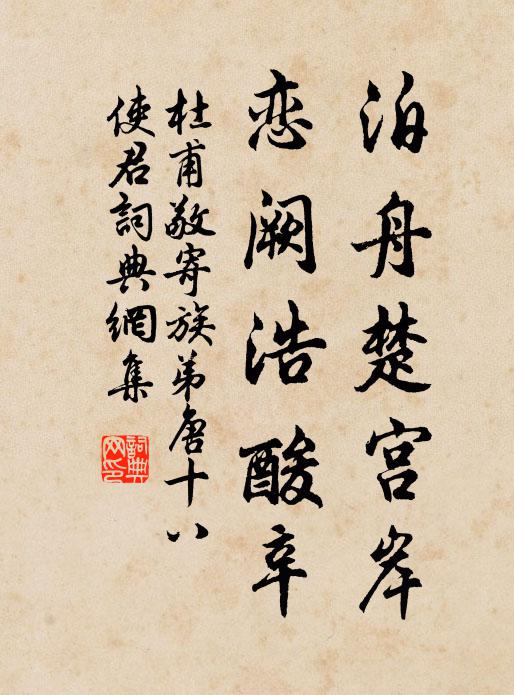 泊舟楚宫岸
恋阙浩酸辛
杜甫敬寄族弟唐十八
使君詞典網集
詞典网印